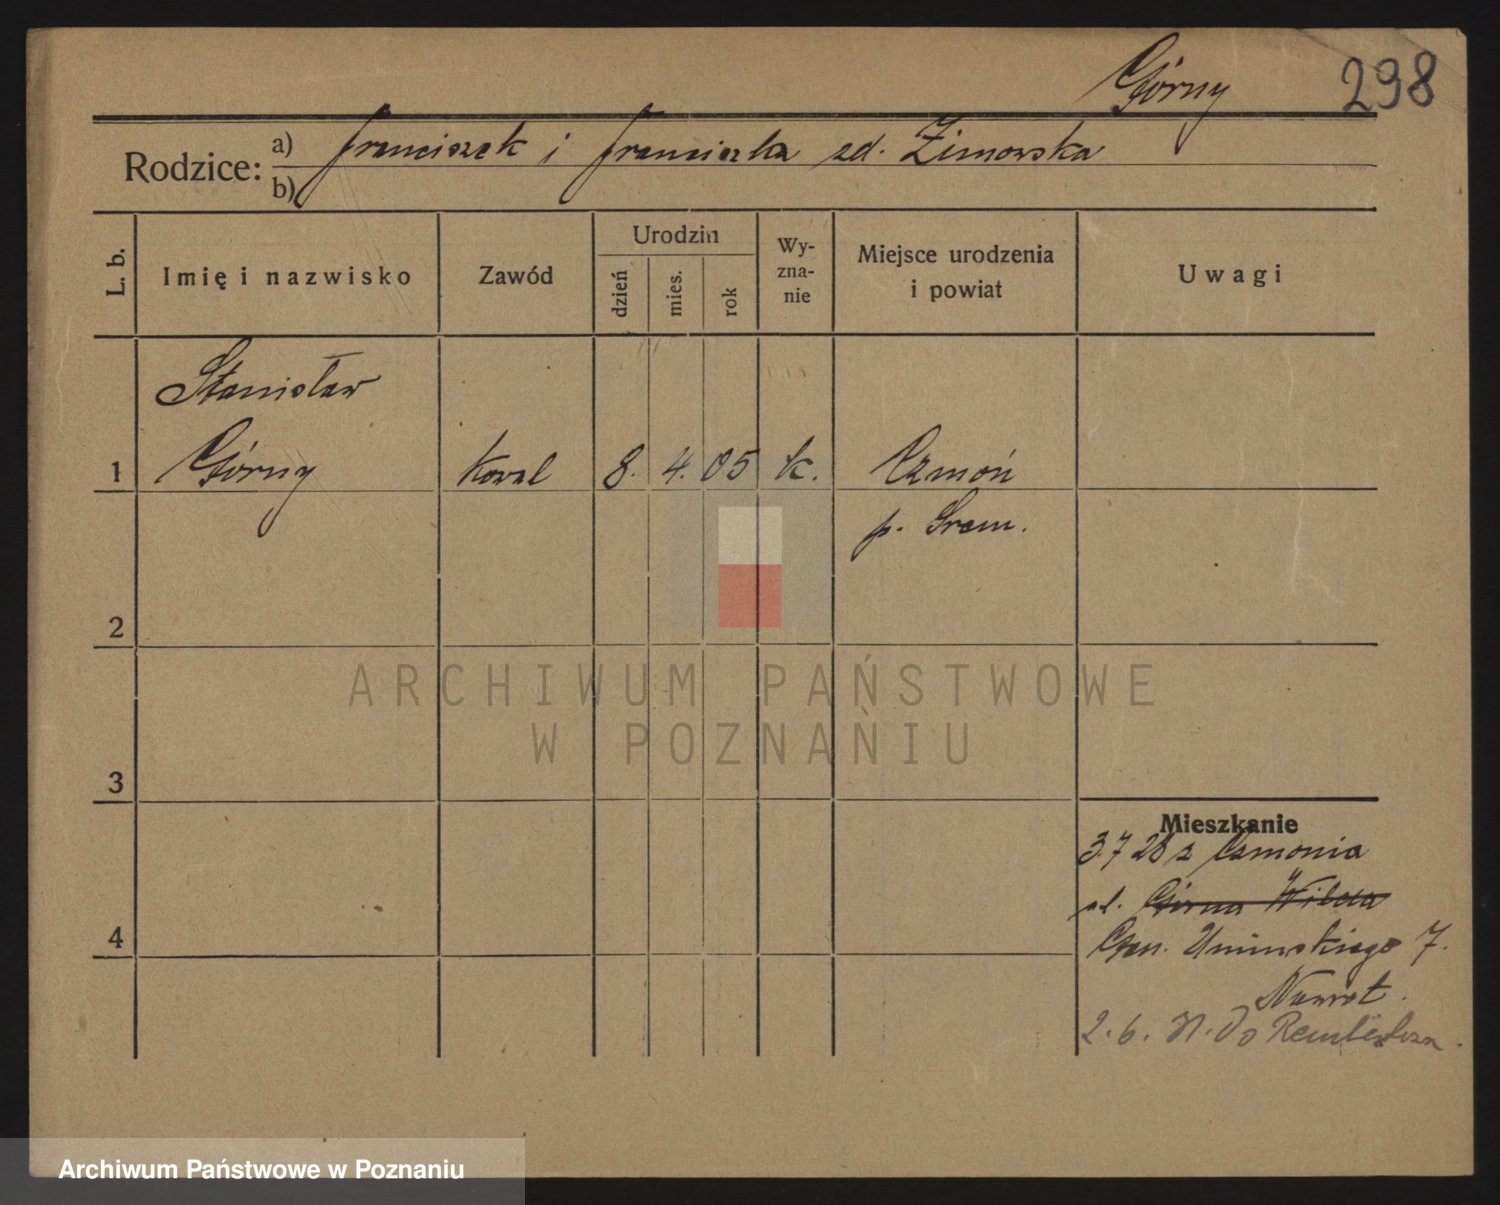 Górny 298
Rodzice: a) Franciszek i Franciszka zd. Zimowska
b)
L. b. Imię i nazwisko Zawód Urodzin dzień mies. rok Wyznanie Miejsce urodzenia i powiat Uwagi
Stanisław
1 Górny Kowal 8. 4. 05 k. Czmoń
p. Śrem.
2
ARCHIWUM PAŃSTWOWE
W POZNANIU
3
Mieszkanie
3.7 28 z Czmonia
ul. Górna Wilda
4
Gen. Umińskiego 7.
Nawrot.
2. 6. do
Archiwum Państwowe w Poznaniu